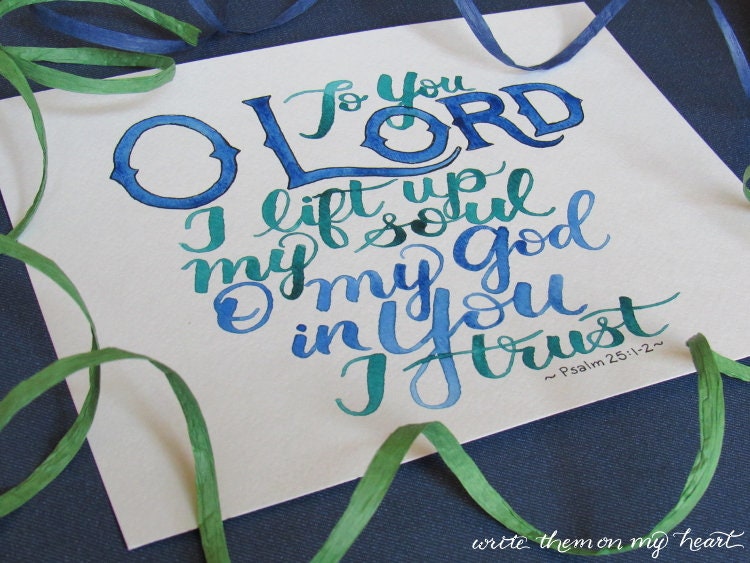 To You
O LORD
I lift up
my soul
O my God
in You
I trust
~ Psalm 25:1-2 ~
write them on my heart